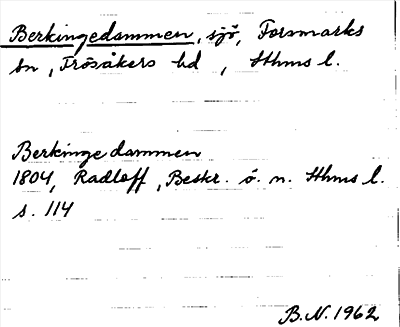 Berkingedammen, sjö, Forsmarks
sn, Frösåkers hd, Sthms l.
Berkinge dammen
1804, Radloff, Beskr. ö. n. Sthms l.
s. 114
B.N. 1962